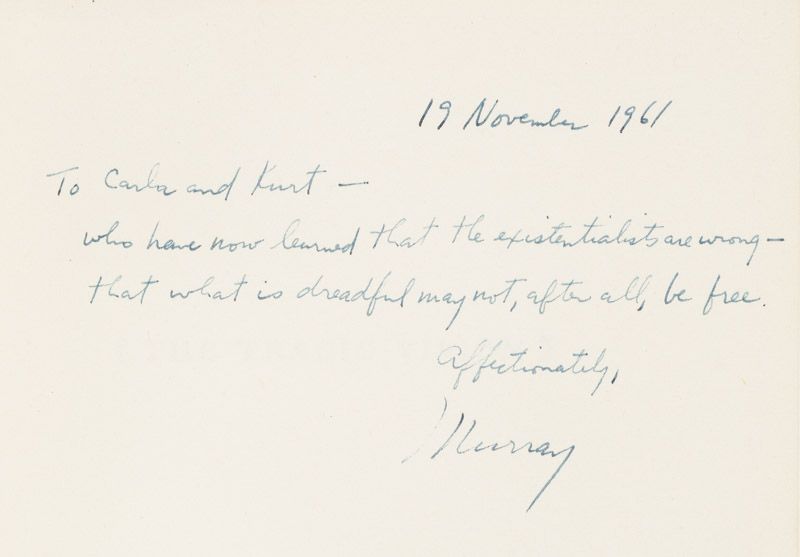 19 November 1961
To Carla and Kurt —
who have now learned that the existentialists are wrong —
that what is dreadful may not, after all, be free.
Affectionately,
Murray